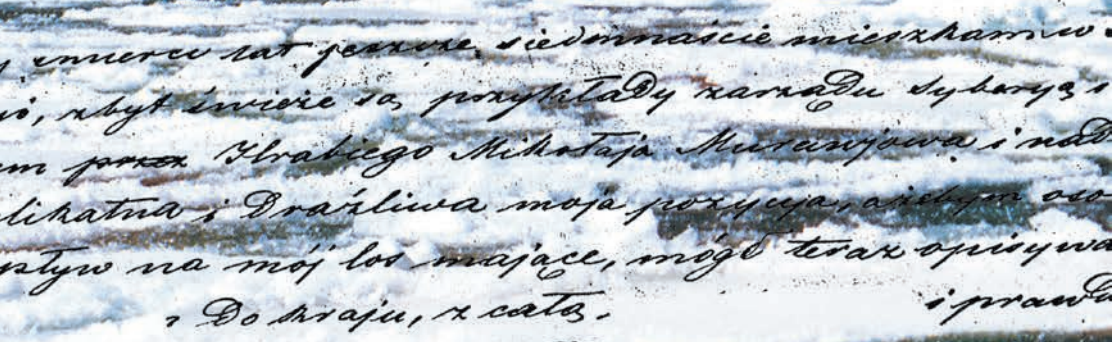 śmierci lat jeszcze siedmnaście mieszkam w
zbyt świeże są przykłady zarządu Syberyą i
przez Hrabiego Mikołaja Murawjowa i nad
likatna i Drażliwa moja pozycyja, ażebym oso
wpływ na mój los mające, mógł teraz opisywa
Do kraju, z całą. i prawd